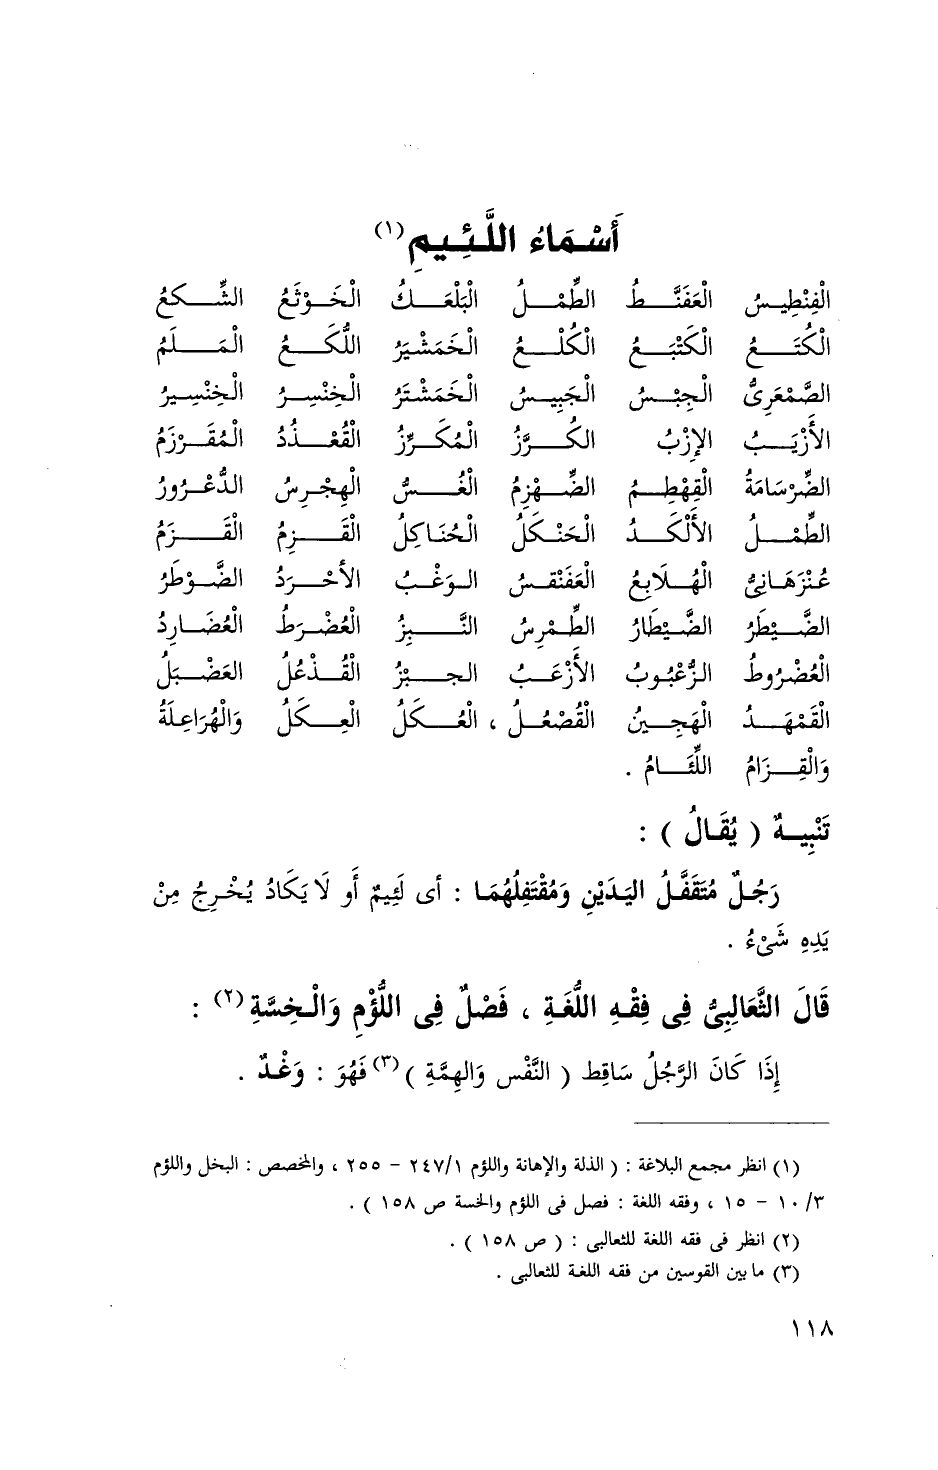 أَسْمَاءُ اللَّئِيمِ (١)
الْفِنْطِيسُ الْعَفَنَّطُ الطِّمْلُ الْبَلْعَكُ الْخَوْتَعُ الشَّكِعُ
الْكُتَعُ الْكَنْتَعُ الْكُلْعُ الْخَمَشْتَرُ اللُّكَعُ الْمَلَمُ
الصَّمْعَرِىُّ الْجِبْسُ الْجَبِيسُ الْخَمَشْتَرُ الْخِنْسِرُ الْخِنْسِيرُ
الأَزْيَبُ الإِزْبُ الكُرَّزُ الْمُكَرِّزُ الْقُعْدُدُ الْمُقَرْزَمُ
الضِّرْسَامَةُ الْقِهْطِمُ الضِّهْزِمُ الْغُسُّ الْهِجْرِسُ الدُّعْرُورُ
الطِّمْلُ الأَلْكَدُ الحَنْكَلُ الْحُنَاكِلُ الْقَزِمُ الْقَزَمُ
عِنْزَهَانِىُّ الْهُلَابِعُ الْعَفَنْقَسُ الوَغْبُ الأَحْرَدُ الضَّوْطَرُ
الضَّيْطَرُ الضَّيْطَارُ الطِّمْرِسُ النَّبِزُ الْعُضْرَطُ الْعُضَارِدُ
الْعُضْرُوطُ الزُّعْبُوبُ الأَزْعَبُ الجبْزُ الْقُذْعُلُ العَضْبَلُ
الْقَمْهَدُ الْهَجِينُ الْقُصْعُلُ ، الْعُكَلُ الْعِكَلُ وَالْهُرَاعِلَةُ
وَالْقِزَامُ اللِّئَامُ .
تَنْبِيهٌ ( يُقَالُ ) :
رَجُلٌ مُتَقَفَّلُ اليَدَيْنِ وَمُقْتَفِلُهُمَا : أى لَئِيمٌ أَو لَا يَكَادُ يُخْرِجُ مِنْ
يَدِهِ شَىْءُ .
قَالَ الثَّعَالِبِىُّ فِى فِقْهِ اللُّغَةِ ، فَصْلٌ فِى اللُّؤْمِ وَالْخِسَّةِ (٢) :
إِذَا كَانَ الرَّجُلُ سَاقِط ( النَّفْس وَالهِمَّةِ ) (٣) فَهُوَ : وَغْدٌ .
(١) انظر مجمع البلاغة : ( الذلة والإهانة واللؤم ٢٤٧/١ - ٢٥٥ ، والمخصص : البخل واللؤم
١٠/٣ - ١٥ ، وفقه اللغة : فصل فى اللؤم والخسة ص ١٥٨ ) .
(٢) انظر فى فقه اللغة للثعالبى : ( ص ١٥٨ ) .
(٣) ما بين القوسين من فقه اللغة للثعالبى .
١١٨